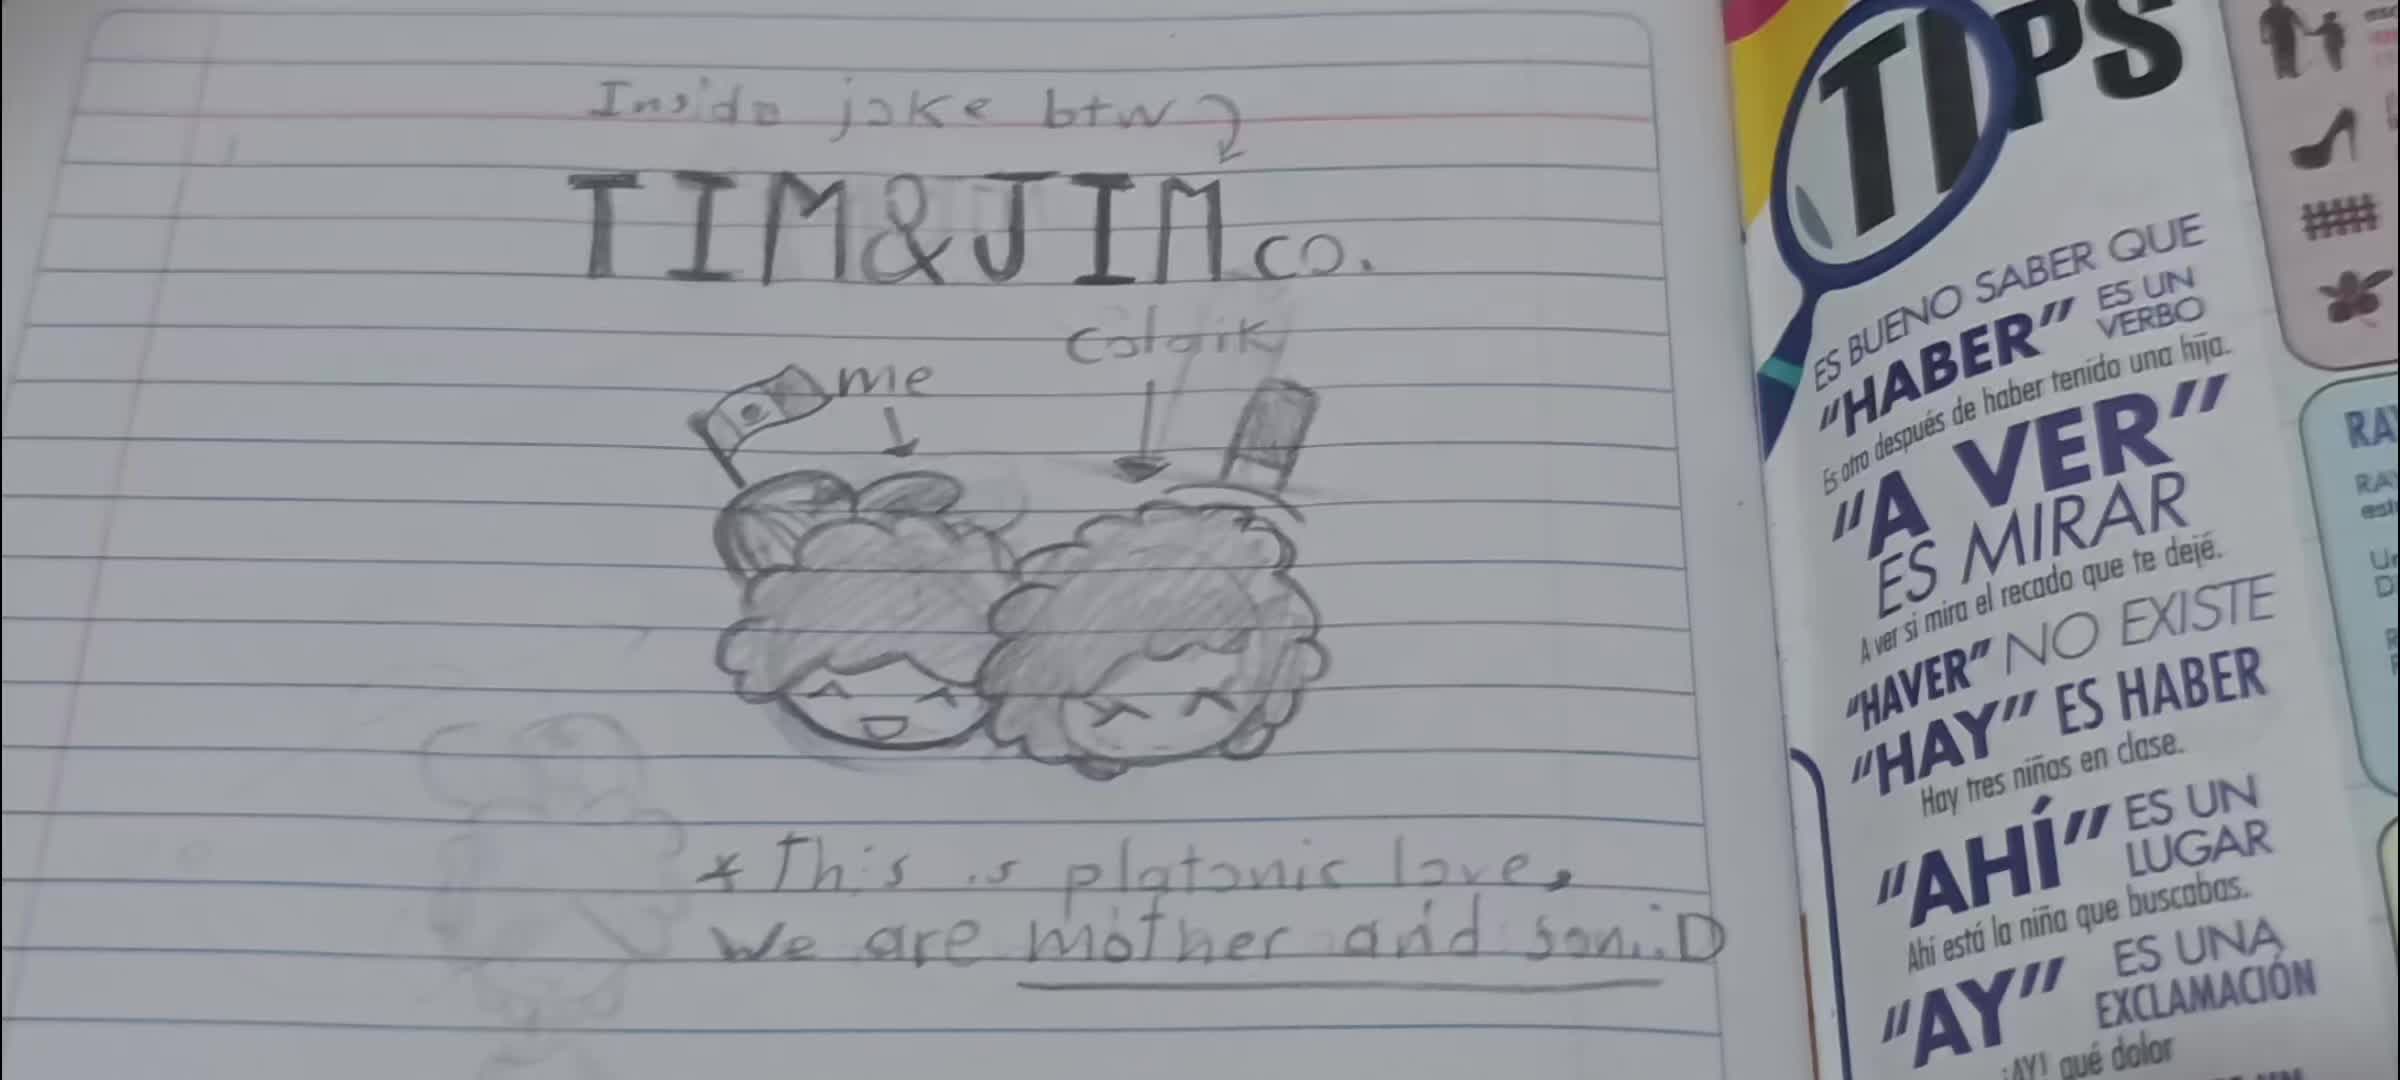 Inside joke btw
TIM&JIM co.
me
TIPS
ES BUENO SABER QUE
"HABER" ES UN VERBO
Es otro después de haber tenido una hija.
"A VER"
ES MIRAR
A ver si mira el recado que te dejé.
"HAVER" NO EXISTE
"HAY" ES HABER
Hay tres niños en clase.
"AHÍ" ES UN LUGAR
Ahí está la niña que buscabas.
"AY" ES UNA EXCLAMACIÓN
¡AY! qué dolor
*This is platonic love,
We are mother and son :D
RA